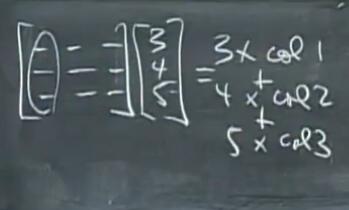 [- - -
- - -
- - -] [3
4
5] = 3 x col 1
+
4 x col 2
+
5 x col 3